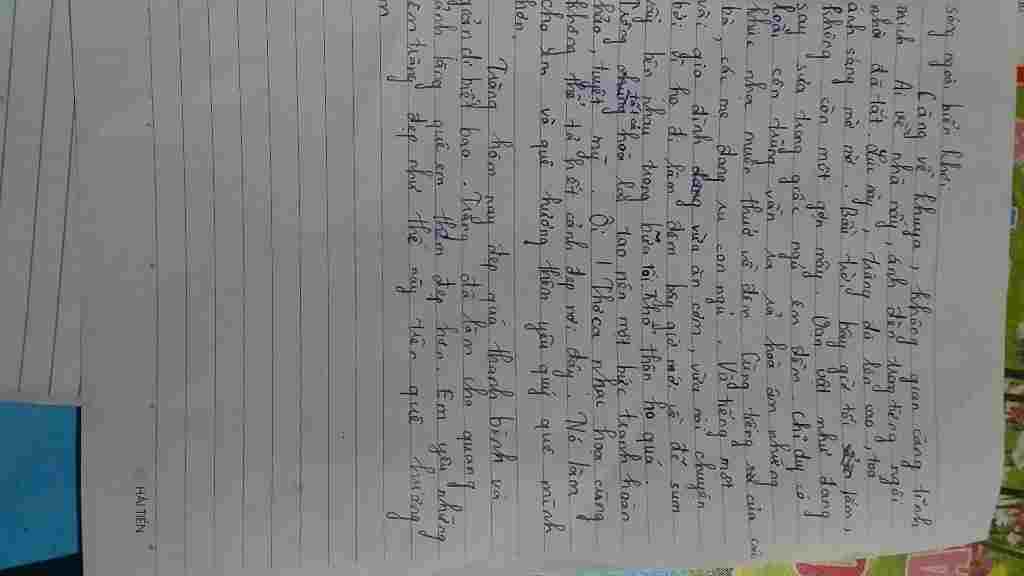 sóng ngoài biển khơi.
Càng về khuya, không gian càng tĩnh
mịch. Ai về nhà nấy, ánh đèn trong từng ngôi
nhà đã tắt. Lúc này, trăng đã lên cao, toả
ánh sáng mờ mờ. Bầu trời bây giờ tối sầm,
không còn một gợn mây. Vạn vật như đang
say sưa trong giấc ngủ êm đềm. chỉ duy có
loài côn trùng vẫn ra rả hoà âm những
khúc nhạc muôn thuở về đêm cùng tiếng của các
bà, các mẹ đang ru con ngủ. Vô tiếng một
vài gia đình đang vừa ăn cơm, vừa nói chuyện
bởi vì họ đi làm đêm bây giờ mới về để sum
vầy bên nhau trong bữa tối. Khởi thân họ quá.
Tưởng tất cả hoà lại tạo nên một bức tranh hoàn
hảo, tuyệt mỹ. Ôi! Thơ ca nhạc hoạ cũng
không thể tả hết cảnh đẹp nơi đây. Nó làm
cho em và quê hương thêm yêu quý quê mình
hơn.
Trăng hôm nay đẹp quá, thanh bình và
giản dị biết bao. Trăng đã làm cho quang
cảnh làng quê em thêm đẹp hơn. Em yêu những
em trăng đẹp như thế này trên quê hương
m
HẢI TIẾN